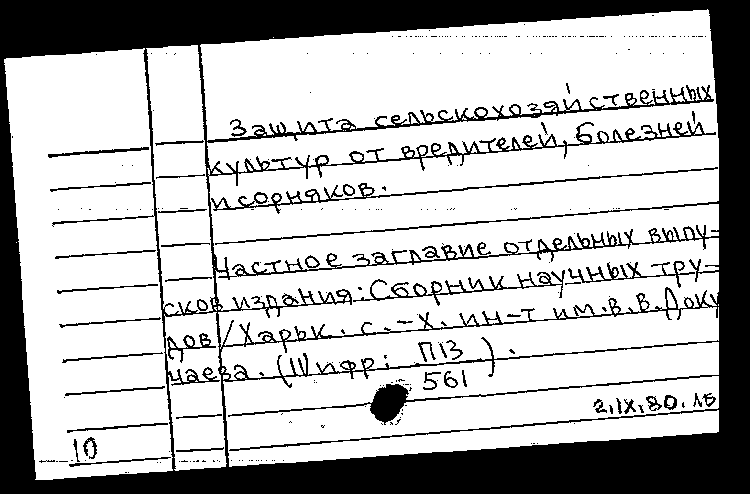 Защита сельскохозяйственных
культур от вредителей, болезней
и сорняков.
Частное заглавие отдельных выпу-
сков издания: Сборник научных тру-
дов/Харьк. с.-х. ин-т им. В.В. Доку
чаева. (Шифр: П13/561).
2.IX.80.15
10